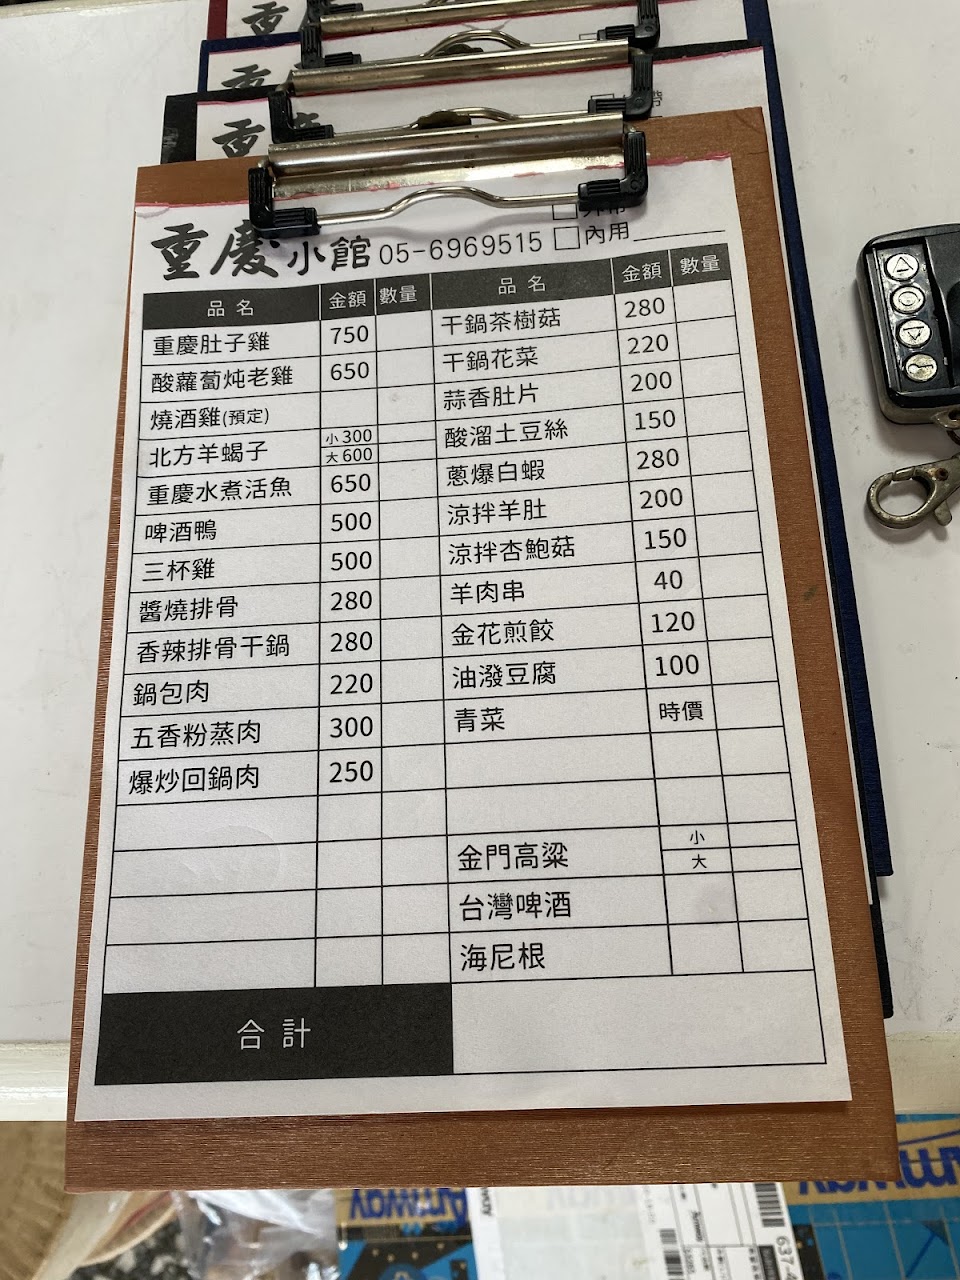 重
重
重慶
外帶
重慶小館 05-6969515 內用
品名 金額 數量 品名 金額 數量
重慶肚子雞 750 干鍋茶樹菇 280
酸蘿蔔炖老雞 650 干鍋花菜 220
燒酒雞(預定) 蒜香肚片 200
北方羊蝎子 小300 大600 酸溜土豆絲 150
重慶水煮活魚 650 蔥爆白蝦 280
啤酒鴨 500 涼拌羊肚 200
三杯雞 500 涼拌杏鮑菇 150
醬燒排骨 280 羊肉串 40
香辣排骨干鍋 280 金花煎餃 120
鍋包肉 220 油潑豆腐 100
五香粉蒸肉 300 青菜 時價
爆炒回鍋肉 250
金門高粱 小 大
台灣啤酒
海尼根
合計
Amway
Amway